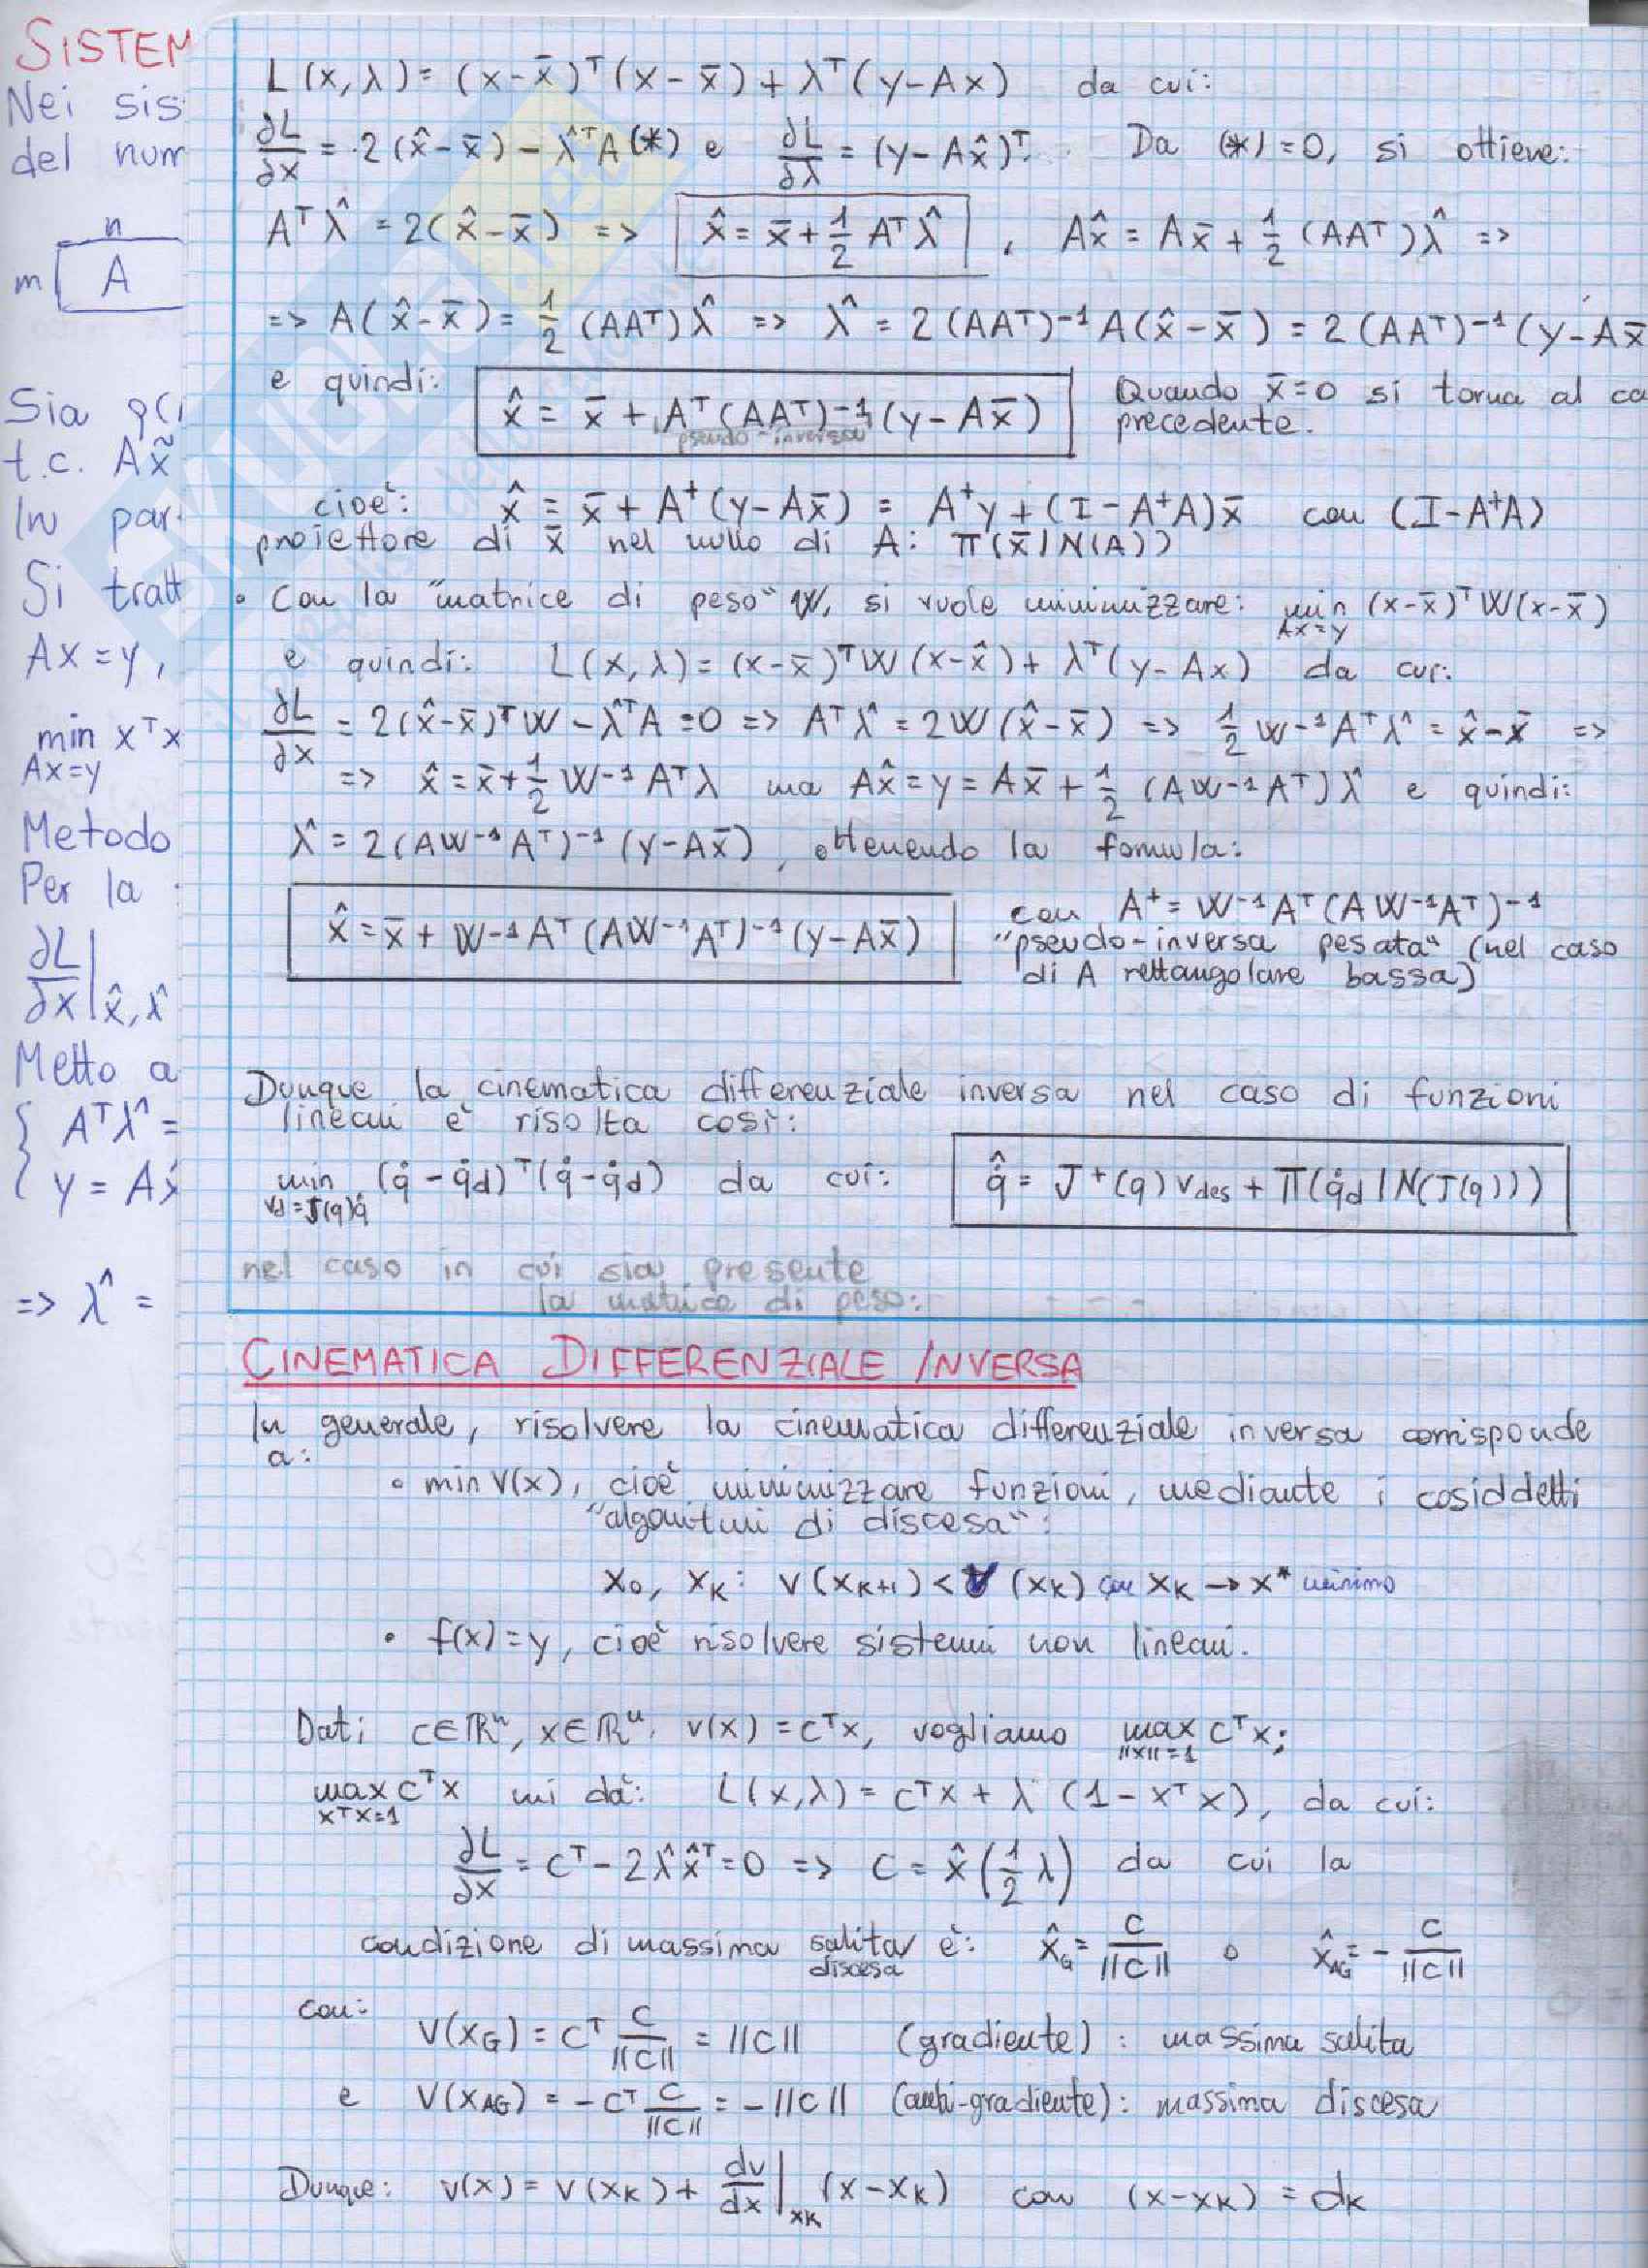 SISTEM
Nei sis
del num
n
m A
Sia
t.c. Ax̃
In par
Si tratt
Ax = y,
min xᵀx
Ax=y
Metodo
Per la
∂L/∂x | x̂, λ̂
Metto a
{ Aᵀλ̂ =
y = Ax̂
=> λ̂ =
L(x,λ) = (x-x̄)ᵀ(x-x̄) + λᵀ(y-Ax) da cui:
∂L/∂x = 2(x̂-x̄) - λ̂ᵀA (*) e ∂L/∂λ = (y-Ax̂)ᵀ. Da (*)=0, si ottiene:
Aᵀλ̂ = 2(x̂-x̄) => x̂ = x̄ + 1/2 Aᵀλ̂ , Ax̂ = Ax̄ + 1/2 (AAᵀ)λ̂ =>
=> A(x̂-x̄) = 1/2 (AAᵀ)λ̂ => λ̂ = 2(AAᵀ)⁻¹A(x̂-x̄) = 2(AAᵀ)⁻¹(y-Ax̄
e quindi: x̂ = x̄ + Aᵀ(AAᵀ)⁻¹(y-Ax̄) Quando x̄=0 si torna al ca
pseudo-inversa precedente.
cioè: x̂ = x̄ + A⁺(y-Ax̄) = A⁺y + (I-A⁺A)x̄ con (I-A⁺A)
proiettore di x̄ nel nullo di A: π(x̄|N(A))
• Con la "matrice di peso" W, si vuole minimizzare: min (x-x̄)ᵀW(x-x̄)
Ax=y
e quindi: L(x,λ) = (x-x̄)ᵀW(x-x̂) + λᵀ(y-Ax) da cui:
∂L/∂x = 2(x̂-x̄)ᵀW - λ̂ᵀA = 0 => Aᵀλ̂ = 2W(x̂-x̄) => 1/2 W⁻¹Aᵀλ̂ = x̂-x̄ =>
=> x̂ = x̄ + 1/2 W⁻¹Aᵀλ ma Ax̂ = y = Ax̄ + 1/2 (AW⁻¹Aᵀ)λ̂ e quindi:
λ̂ = 2(AW⁻¹Aᵀ)⁻¹(y-Ax̄), ottenendo la formula:
x̂ = x̄ + W⁻¹Aᵀ(AW⁻¹Aᵀ)⁻¹(y-Ax̄) con A⁺ = W⁻¹Aᵀ(AW⁻¹Aᵀ)⁻¹
"pseudo-inversa pesata" (nel caso
di A rettangolare bassa)
Dunque la cinematica differenziale inversa nel caso di funzioni
lineari è risolta così:
min (q̇-q̇d)ᵀ(q̇-q̇d) da cui: q̇̂ = J⁺(q)vdes + π(q̇d|N(J(q)))
vd=J(q)q̇
nel caso in cui sia presente
la matrice di peso:
CINEMATICA DIFFERENZIALE INVERSA
In generale, risolvere la cinematica differenziale inversa corrisponde
a:
• min V(x), cioè minimizzare funzioni, mediante i cosiddetti
"algoritmi di discesa":
x₀, xₖ: V(xₖ₊₁) < V(xₖ) con xₖ → x* minimo
• f(x)=y, cioè risolvere sistemi non lineari.
Dati c∈ℝⁿ, x∈ℝⁿ. V(x) = cᵀx, vogliamo max cᵀx;
||x||=1
max cᵀx mi dà: L(x,λ) = cᵀx + λ (1-xᵀx), da cui:
xᵀx=1
∂L/∂x = cᵀ - 2λ̂x̂ᵀ = 0 => c = x̂(1/2 λ) da cui la
condizione di massima salita è: x̂G = c/||c|| o x̂AG = - c/||c||
discesa
con:
V(xG) = cᵀ c/||c|| = ||c|| (gradiente): massima salita
e V(xAG) = -cᵀ c/||c|| = -||c|| (anti-gradiente): massima discesa
Dunque: V(x) = V(xₖ) + dv/dx |xₖ (x-xₖ) con (x-xₖ) = dₖ